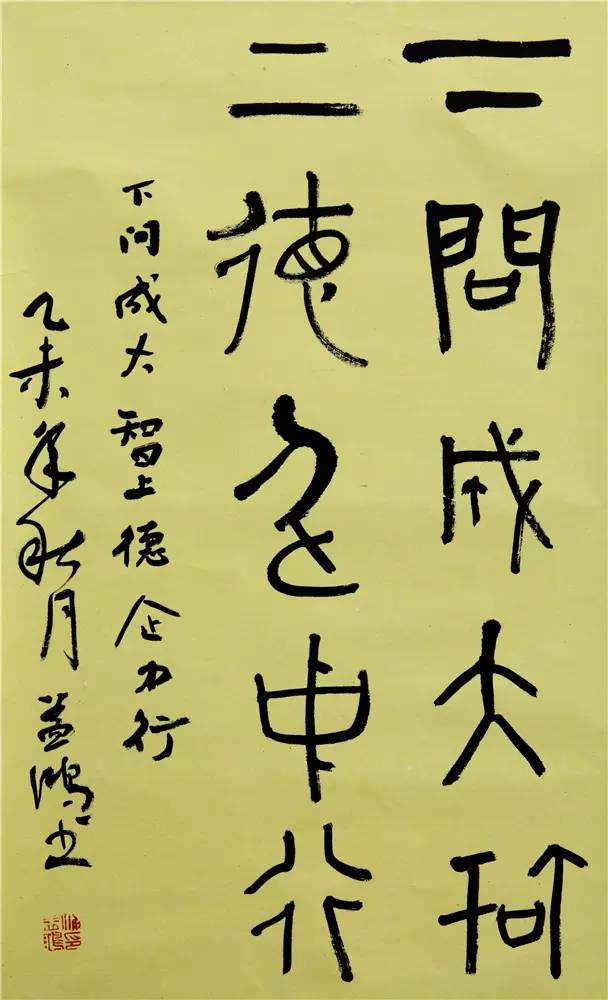 下問成大智
上德企中行
下问成大智上德企中行
乙未年秋月益鸿书